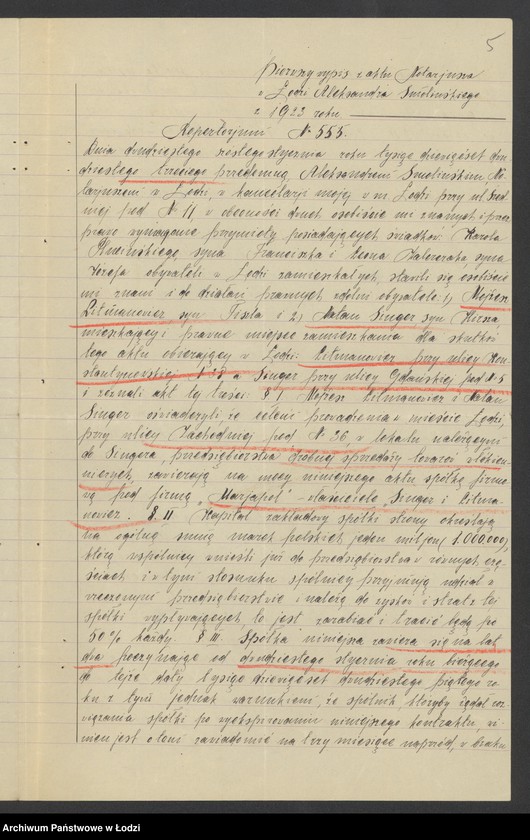 5
Pierwszy wypis z aktu Notarjusza
w Łodzi Aleksandra Smolińskiego
z 1923 roku
Repertorjum № 555.
Dnia dwudziestego szóstego stycznia roku tysiąc dziewięćset dwu
dziestego trzeciego przedemną Aleksandrem Smolińskim, No
tarjuszem w Łodzi, w kancelarji mojej w m. Łodzi przy ul. Śred
niej pod № 11, w obecności dwóch osobiście mi znanych i prze
prawo wymagane przymioty posiadających świadków: Karola
syna Franciszka i Leona syna
Józefa obywateli w Łodzi zamieszkałych, stawili się osobiście
mi znani i do działań prawnych zdolni obywatele: 1) Mojżesz
Litmanowicz syn Fiszla i 2) Natan Singer syn
mieszkający i prawne miejsce zamieszkania dla skutków
tego aktu obierający w Łodzi: Litmanowicz przy ulicy Kon
stantynowskiej № a Singer przy ulicy Gdańskiej pod № 5
i zeznali akt tej treści: § I. Mojżesz Litmanowicz i Natan
Singer oświadczyli, że celem prowadzenia w mieście Łodzi
przy ulicy Zachodniej pod № 36 w lokalu należącym
do Singera, przedsiębiorstwa drobnej sprzedaży towarów włókien
niczych, zawierają na mocy niniejszego aktu spółkę firmo
wą pod firmą „Marjapol" - właściciele „Singer i Litma-
nowicz. § II Kapitał zakładowy spółki strony określają
na ogólną sumę marek polskich jeden miljon (1.000.000),
którą wspólnicy wnieśli już do przedsiębiorstwa w równych czę
ściach i w tym stosunku spólnicy przyjmują udział w
rzeczonym przedsiębiorstwie i należą do zysków i strat z tej
spółki wypływających, to jest zarabiać i tracić będą po
50% każdy. § III. Spółka niniejsza zawiera się na lat
dwa poczynając od dwudziestego stycznia roku bieżącego
do tejże daty tysiąc dziewięćset dwudziestego piątego ro
ku z tym jednak warunkiem, że spólnik, któryby żądał roz
wiązania spółki po wyekspirowaniu niniejszego kontraktu, wi
nien jest o tem zawiadomić na trzy miesiące naprzód, w braku
Archiwum Państwowe w Łodzi